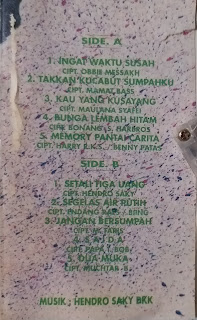 SIDE. A
1. INGAT WAKTU SUSAH
CIPT. OBBIE MESSAKH
2. TAKKAN KUCABUT SUMPAHKU
CIPT. MAMAT BASS
3. KAU YANG KUSAYANG
CIPT. MAULANA SYAFEI
4. BUNGA LEMBAH HITAM
CIPT. BONANG S. HARBROS
5. MEMORY PANTAI CARITA
CIPT. HARRY B.K.S. / BENNY PATAS
SIDE. B
1. SETALI TIGA UANG
CIPT. HENDRO SAKY
2. SEGELAS AIR PUTIH
CIPT. ENDANG
3. JANGAN BERSUMPAH
CIPT.
4. SAJDA
CIPT. PAPA T. BOB
5. DUA MUKA
CIPT. MUCHTAR B.
MUSIK : HENDRO SAKY BKK